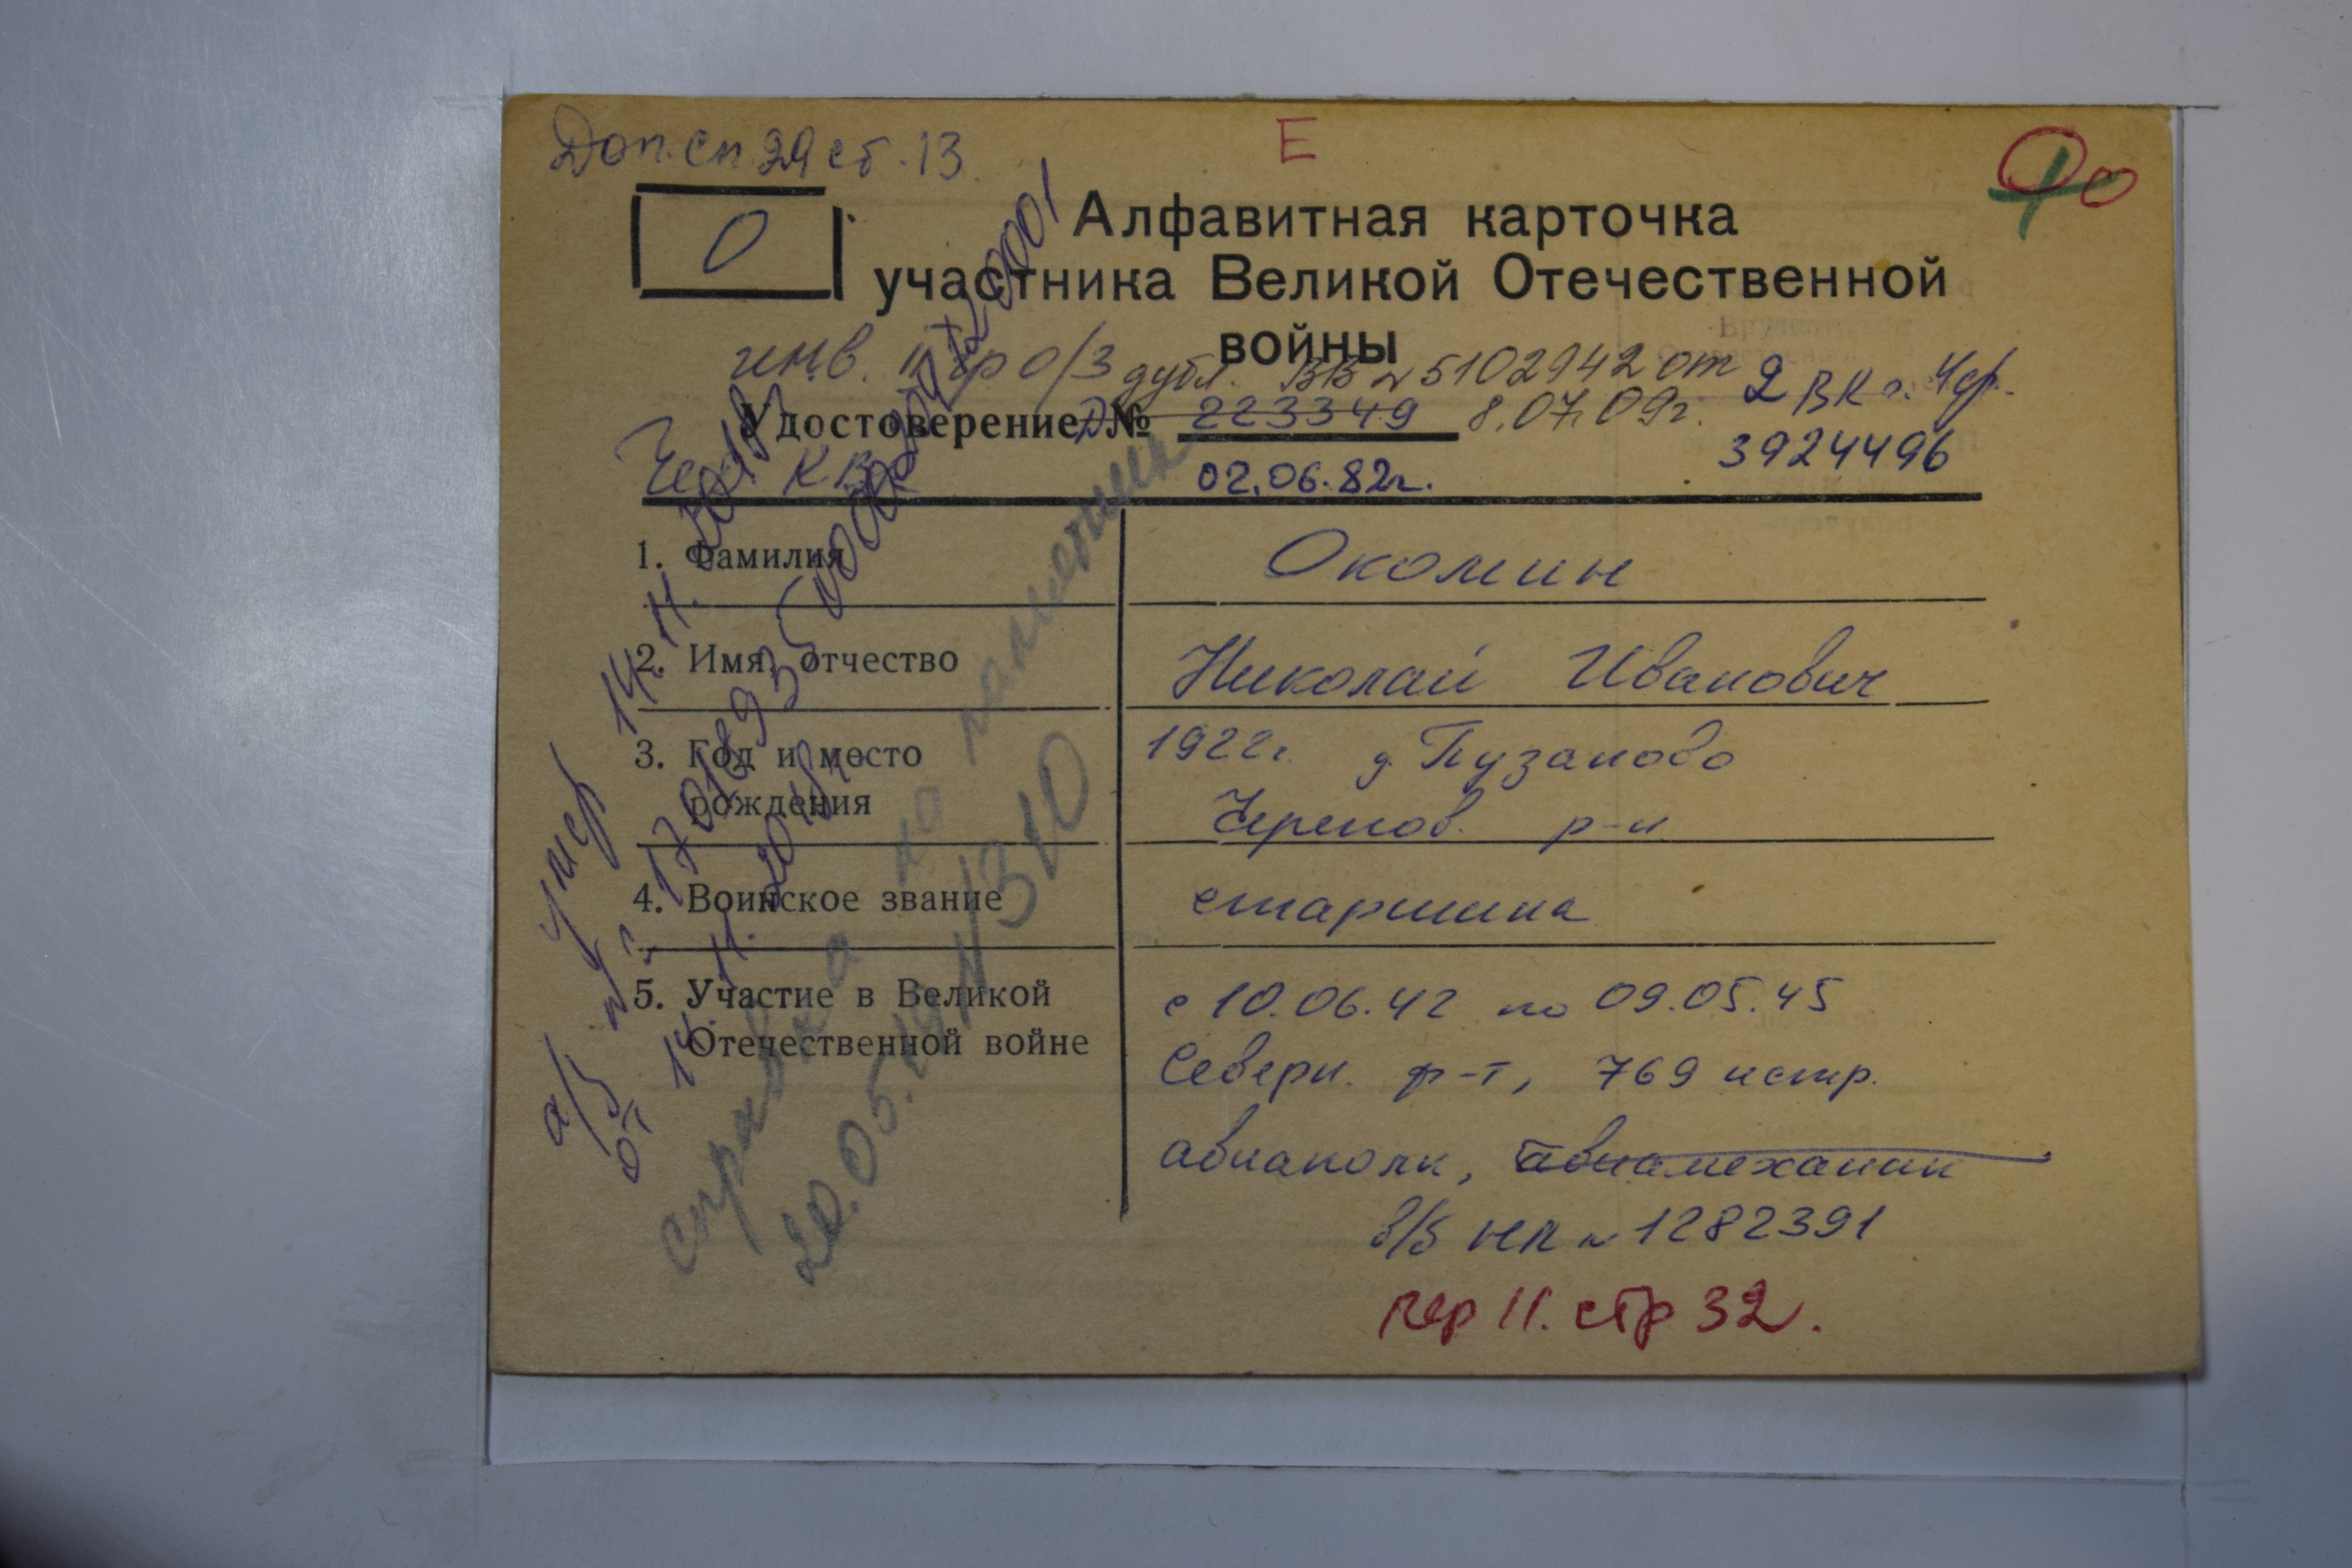 Доп. сп. 29 ст. 13.
Е
О
Алфавитная карточка
участника Великой Отечественной
войны
инв. II гр о/з дубл. ВВ № 5102942 от
8.07.09г.
2 ВК г. Чер.
3924496
Удостоверение Д № 223349
Чер КВК 02.06.82г.
1. Фамилия
Окомин
2. Имя, отчество
Николай Иванович
3. Год и место
рождения
1922г. д. Пузаново
Черепов. р-н
4. Воинское звание
старшина
5. Участие в Великой
Отечественной войне
с 10.06.42 по 09.05.45
Северн. ф-т, 769 истр.
авиаполк, авиамеханик
в/б НП № 1282391
пер 11. стр 32.
умер 14.11.
а/з №
от 14.11.
справка на
20.05. № 1310